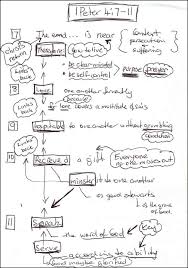 1 Peter 4:7-11
7 The end... is near
Context
persecution
suffering
Christ's
return
Therefore
be clear minded
be self control
purpose prayer
Links
back
8 love one another
because
love covers a multitude of sins
Links
back
9 hospitable to one another without grumbling
condition
10 Received a gift
Everyone
no one misses out
minister it to one another
as good stewards
of the grace
of God
11 Speaks
the word of God
Key
Serve
according to ability
God may be glorified